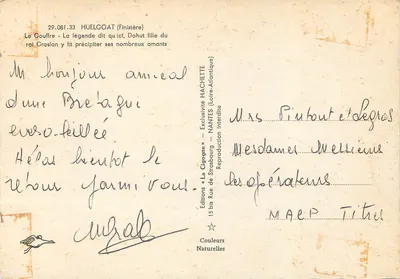 29.081.33 HUELGOAT (Finistère)
Le Gouffre - La légende dit qu'ici, Dahut fille du
roi Gralon y fit précipiter ses nombreux amants
Un bonjour amical
d'une Bretagne
ensoleillée
Hélas bientôt le
retour parmi vous.
Editions « La Cigogne » - Exclusivité HACHETTE
15 bis Rue de Strasbourg - NANTES (Loire-Atlantique)
Reproduction Interdite
Couleurs
Naturelles
Mrs Pintout et Legros
Mesdames Messieurs
les opérateurs
MAEP Titres